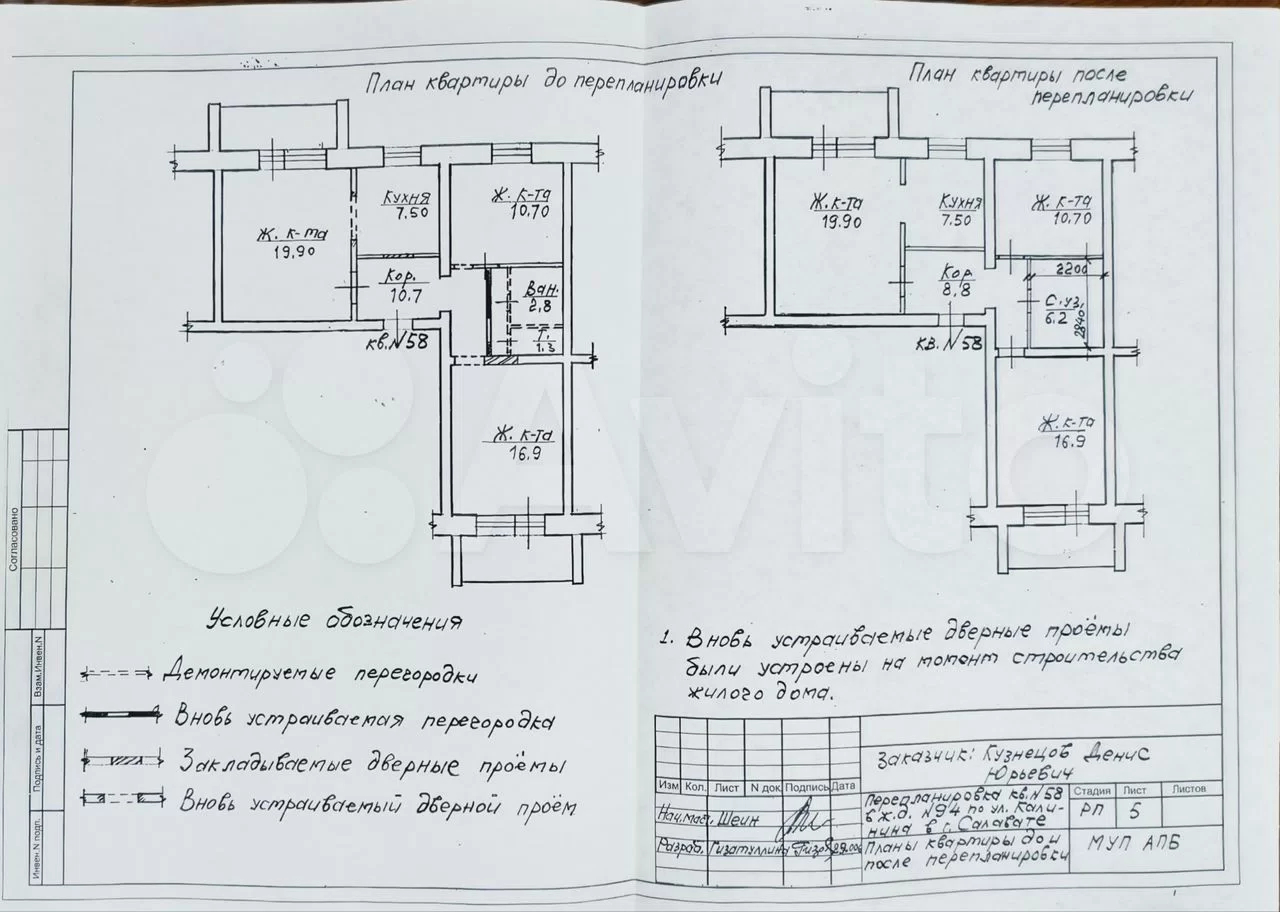 План квартиры до перепланировки
Ж. к-та
19,90
Кухня
7.50
Ж. к-та
10,70
Кор.
10.7
Ван.
2,8
Т.
1.3
кв. №58
Ж. к-та
16,9
План квартиры после
перепланировки
Ж. к-та
19.90
Кухня
7.50
Ж. к-та
10,70
Кор.
8,8
2200
С.уз,
6.2
2840
кв. №58
Ж. к-та
16.9
Avito
Условные обозначения
Демонтируемые перегородки
Вновь устраиваемая перегородка
Закладываемые дверные проёмы
Вновь устраиваемый дверной проём
1. Вновь устраиваемые дверные проёмы
были устроены на момент строительства
жилого дома.
Согласовано
Взам.Инвен.N
Подпись и дата
Инвен.N подл.
Изм Кол. Лист N док Подпись Дата
Нач.маст. Шеин
Разраб. Гизатуллина
Заказчик: Кузнецов Денис
Юрьевич
Перепланировка кв.№58
в ж.д. №94 по ул. Кали-
нина в г. Салавате
Планы квартиры до и
после перепланировки
Стадия Лист Листов
РП 5
МУП АПБ